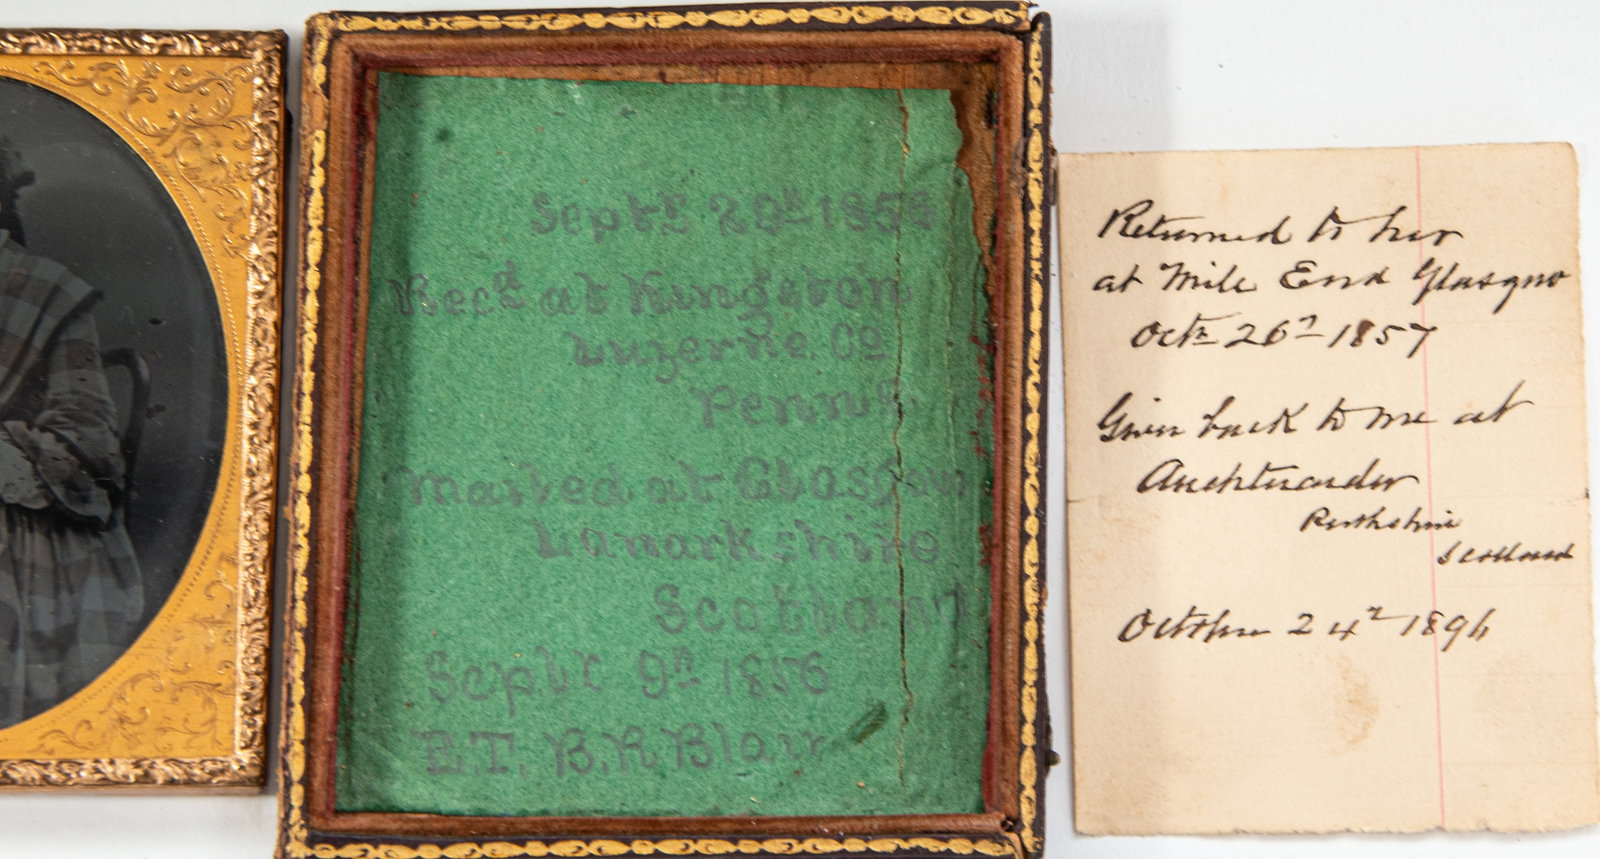 Septr 28th 185
Recd at Kingston
Luzerne Co
Penna.
Mailed at Glasgow
Lanarkshire
Scotland
Septr 9th 1856
E.T. B.R Blair
Returned to her
at Mile End Glasgow
Octr 26th 1857
Given back to me at
Auchterarder
Perthshire
Scotland
October 24th 1896